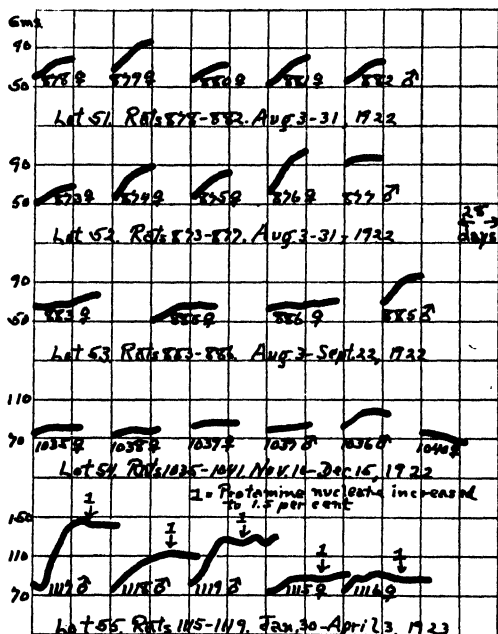 Gms
90
50
878♀ 879♀ 880♀ 881♀ 882♂
Lot 51. Rats 878-882. Aug 3-31, 1922
90
50
873♀ 874♀ 875♀ 876♀ 877♂
28
days
Lot 52. Rats 873-877. Aug 3-31, 1922
90
60
883♀ 885♀ 886♀ 885♂
Lot 53. Rats 883-886. Aug 3-Sept. 22, 1922
110
70
1035♀ 1038♀ 1039♀ 1037♂ 1036♂ 1040♀
Lot 54. Rats 1035-1041. Nov. 10-Dec 15, 1922
1= Protamine nucleate increased
to 1.5 per cent
150
1 1 1 1 1
110
70
1117♂ 1118♂ 1119♂ 1115♀ 1116♀
Lot 55. Rats 1115-1119. Jan. 30-April 3, 1923